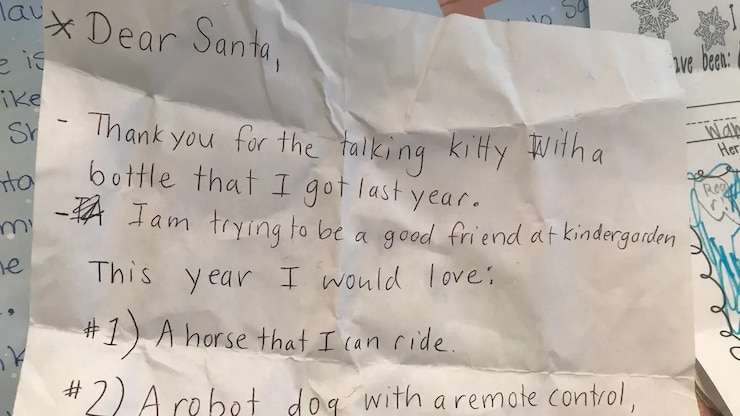 * Dear Santa,
- Thank you for the talking kitty with a
bottle that I got last year.
- I am trying to be a good friend at kindergarden
This year I would love:
#1) A horse that I can ride.
#2) A robot dog with a remote control,
lau
e is
ike
Sh
me
sa
I
ave been:
Her